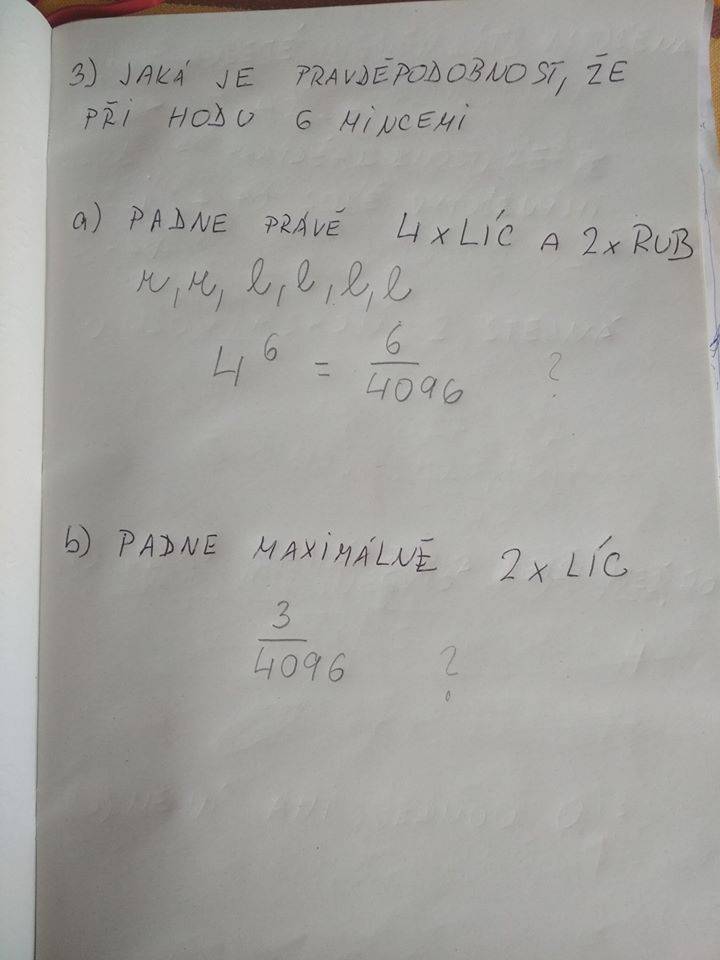 3) JAKÁ JE PRAVDĚPODOBNOST, ŽE
PŘI HODU 6 MINCEMI
a) PADNE PRÁVĚ 4 x LÍC A 2 x RUB
r, r, l, l, l, l
4^6 = 6/4096 ?
b) PADNE MAXIMÁLNĚ 2 x LÍC
3/4096 ?